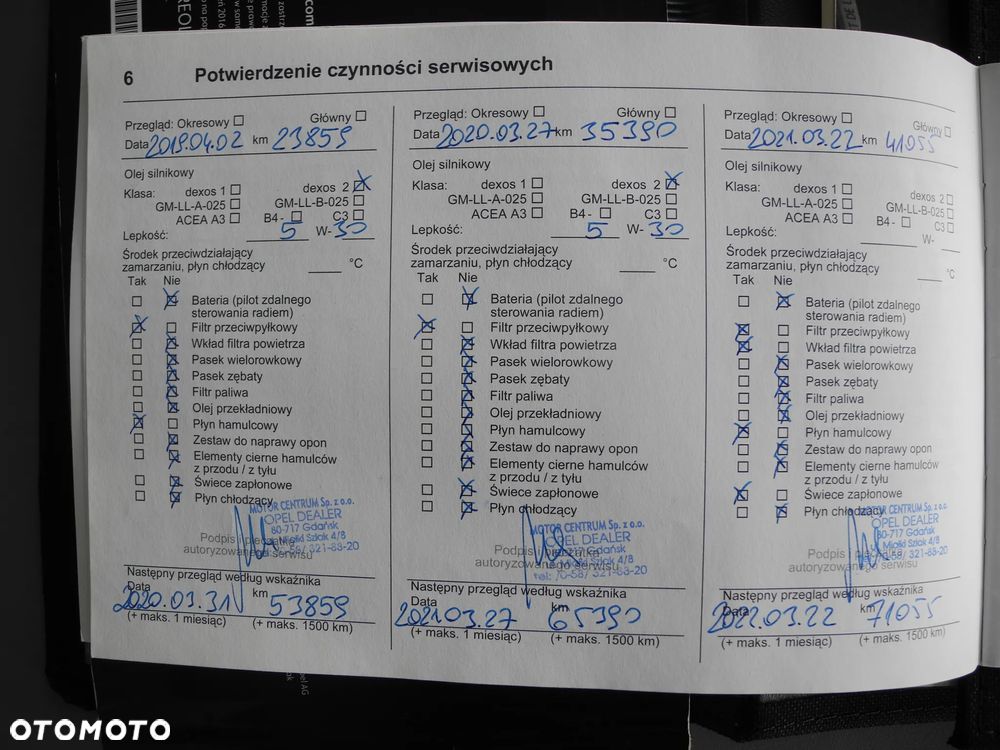 6 Potwierdzenie czynności serwisowych
Przegląd: Okresowy Główny
Data 2019.04.02 km 23859
Olej silnikowy
Klasa: dexos 1 dexos 2
GM-LL-A-025 GM-LL-B-025
ACEA A3 B4- C3
Lepkość: 5 W- 30
Środek przeciwdziałający
zamarzaniu, płyn chłodzący °C
Tak Nie
Bateria (pilot zdalnego
sterowania radiem)
Filtr przeciwpyłkowy
Wkład filtra powietrza
Pasek wielorowkowy
Pasek zębaty
Filtr paliwa
Olej przekładniowy
Płyn hamulcowy
Zestaw do naprawy opon
Elementy cierne hamulców
z przodu / z tyłu
Świece zapłonowe
Płyn chłodzący
MOTOR CENTRUM Sp. z o.o.
OPEL DEALER
80-717 Gdańsk
Miałki Szlak 4/8
Podpis i pieczątka
autoryzowanego serwisu
Następny przegląd według wskaźnika
Data km
2020.03.31 53859
(+ maks. 1 miesiąc) (+ maks. 1500 km)
Przegląd: Okresowy Główny
Data 2020.03.27 km 35390
Olej silnikowy
Klasa: dexos 1 dexos 2
GM-LL-A-025 GM-LL-B-025
ACEA A3 B4- C3
Lepkość: 5 W- 30
Środek przeciwdziałający
zamarzaniu, płyn chłodzący °C
Tak Nie
Bateria (pilot zdalnego
sterowania radiem)
Filtr przeciwpyłkowy
Wkład filtra powietrza
Pasek wielorowkowy
Pasek zębaty
Filtr paliwa
Olej przekładniowy
Płyn hamulcowy
Zestaw do naprawy opon
Elementy cierne hamulców
z przodu / z tyłu
Świece zapłonowe
Płyn chłodzący
MOTOR CENTRUM Sp. z o.o.
OPEL DEALER
80-717 Gdańsk
Miałki Szlak 4/8
Podpis i pieczątka
autoryzowanego serwisu
tel: /0-58/ 321-83-20
Następny przegląd według wskaźnika
Data km
2021.03.27 65390
(+ maks. 1 miesiąc) (+ maks. 1500 km)
Przegląd: Okresowy Główny
Data 2021.03.22 km 41055
Olej silnikowy
Klasa: dexos 1 dexos 2
GM-LL-A-025 GM-LL-B-025
ACEA A3 B4- C3
Lepkość: W-
Środek przeciwdziałający
zamarzaniu, płyn chłodzący °C
Tak Nie
Bateria (pilot zdalnego
sterowania radiem)
Filtr przeciwpyłkowy
Wkład filtra powietrza
Pasek wielorowkowy
Pasek zębaty
Filtr paliwa
Olej przekładniowy
Płyn hamulcowy
Zestaw do naprawy opon
Elementy cierne hamulców
z przodu / z tyłu
Świece zapłonowe
Płyn chłodzący
MOTOR CENTRUM Sp. z o.o.
OPEL DEALER
80-717 Gdańsk
Miałki Szlak 4/8
Podpis i
autoryzowanego serwisu
Następny przegląd według wskaźnika
Data km
2022.03.22 71055
(+ maks. 1 miesiąc) (+ maks. 1500 km)
OTOMOTO